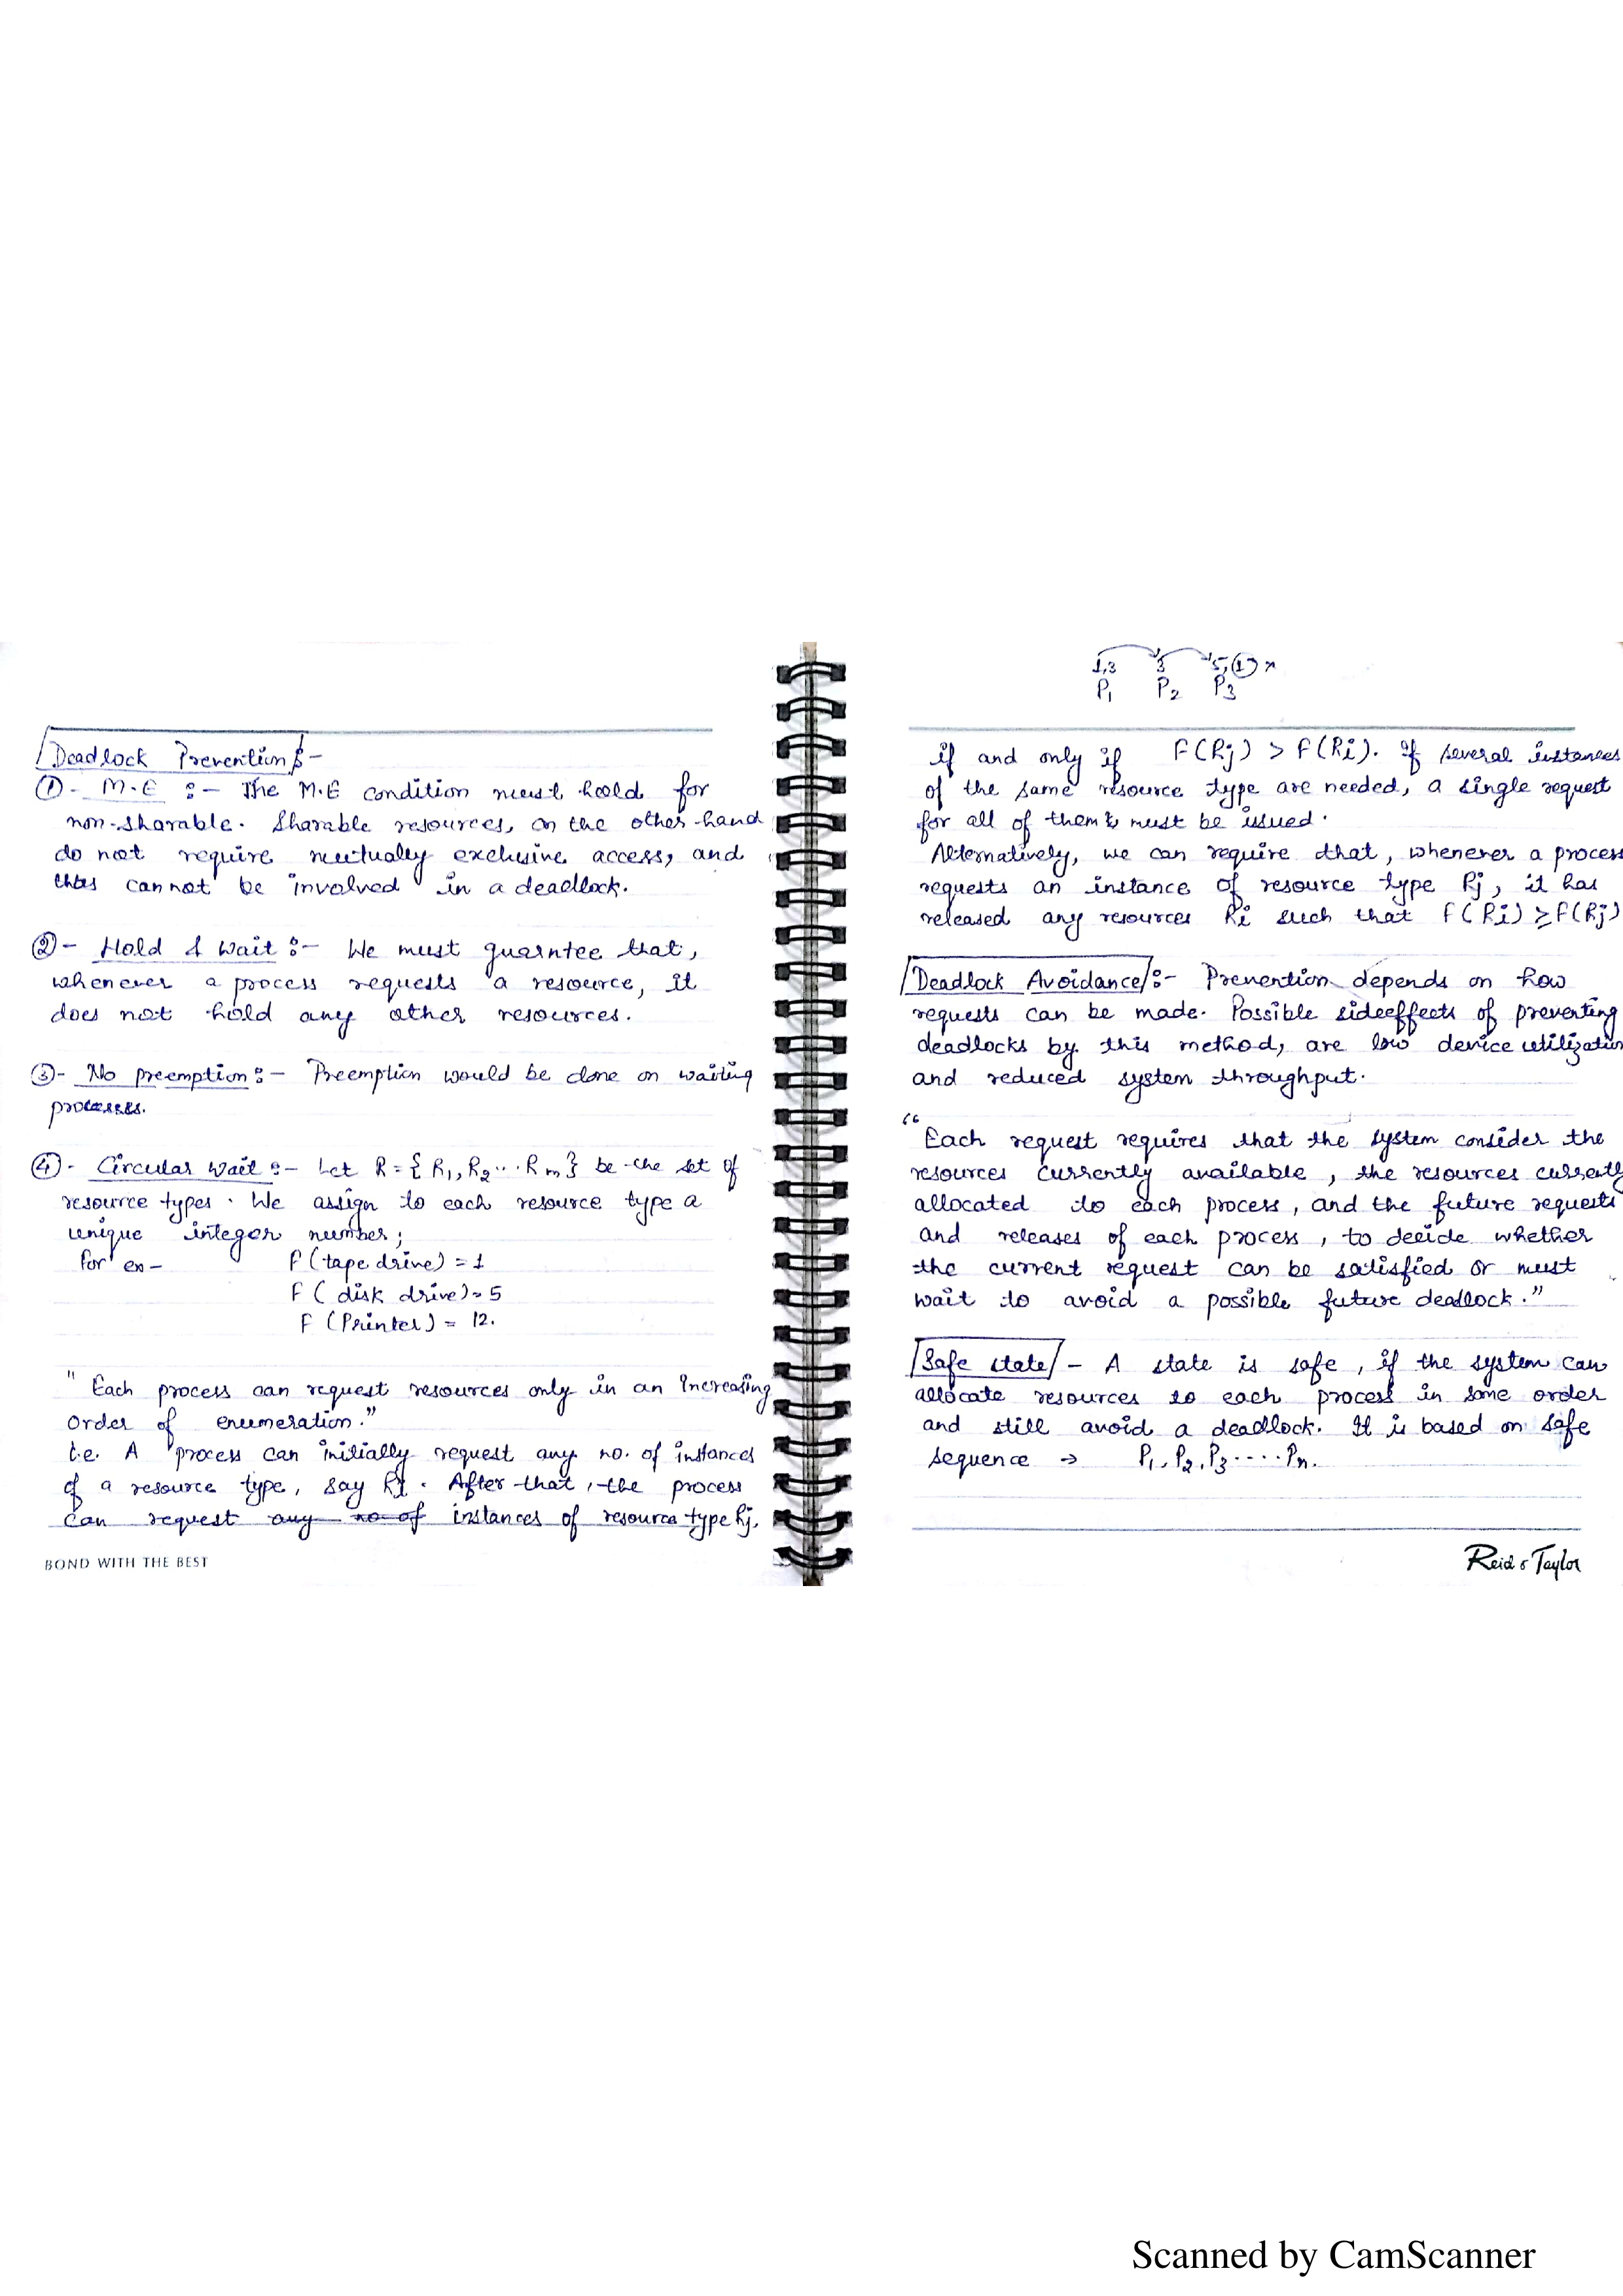 Deadlock Prevention :-
① - M.E :- The M.E condition must hold for
non-sharable. Sharable resources, on the other hand
do not require mutually exclusive access, and
thus cannot be involved in a deadlock.
② - Hold & Wait :- We must guarntee that,
whenever a process requests a resource, it
does not hold any other resources.
③ - No preemption :- Preemption would be done on waiting
processes.
④ - Circular wait :- Let R = { R1, R2 .. Rm } be the set of
resource types. We assign to each resource type a
unique integer number;
for ex - F (tape drive) = 1
F ( disk drive) = 5
F (Printer) = 12.
" Each process can request resources only in an Increasing
order of enumeration."
i.e. A process can initially request any no. of instances
of a resource type, say Ri. After that, the process
can request any no of instances of resource type Rj,
BOND WITH THE BEST
1,3 3 5,① x
P1 P2 P3
if and only if F(Rj) > F(Ri). If several instances
of the same resource type are needed, a single request
for all of them must be issued.
Alternatively, we can require that, whenever a process
requests an instance of resource type Rj, it has
released any resources Ri such that F(Ri) ≥ F(Rj)
Deadlock Avoidance :- Prevention depends on how
requests can be made. Possible sideeffects of preventing
deadlocks by this method, are low device utilization
and reduced system throughput.
" Each request requires that the system consider the
resources currently available, the resources currently
allocated to each process, and the future requests
and releases of each process, to decide whether
the current request can be satisfied or must
wait to avoid a possible future deadlock."
Safe state - A state is safe, if the system can
allocate resources to each process in some order
and still avoid a deadlock. It is based on safe
sequence → P1, P2, P3 .... Pn.
Reid & Taylor
Scanned by CamScanner